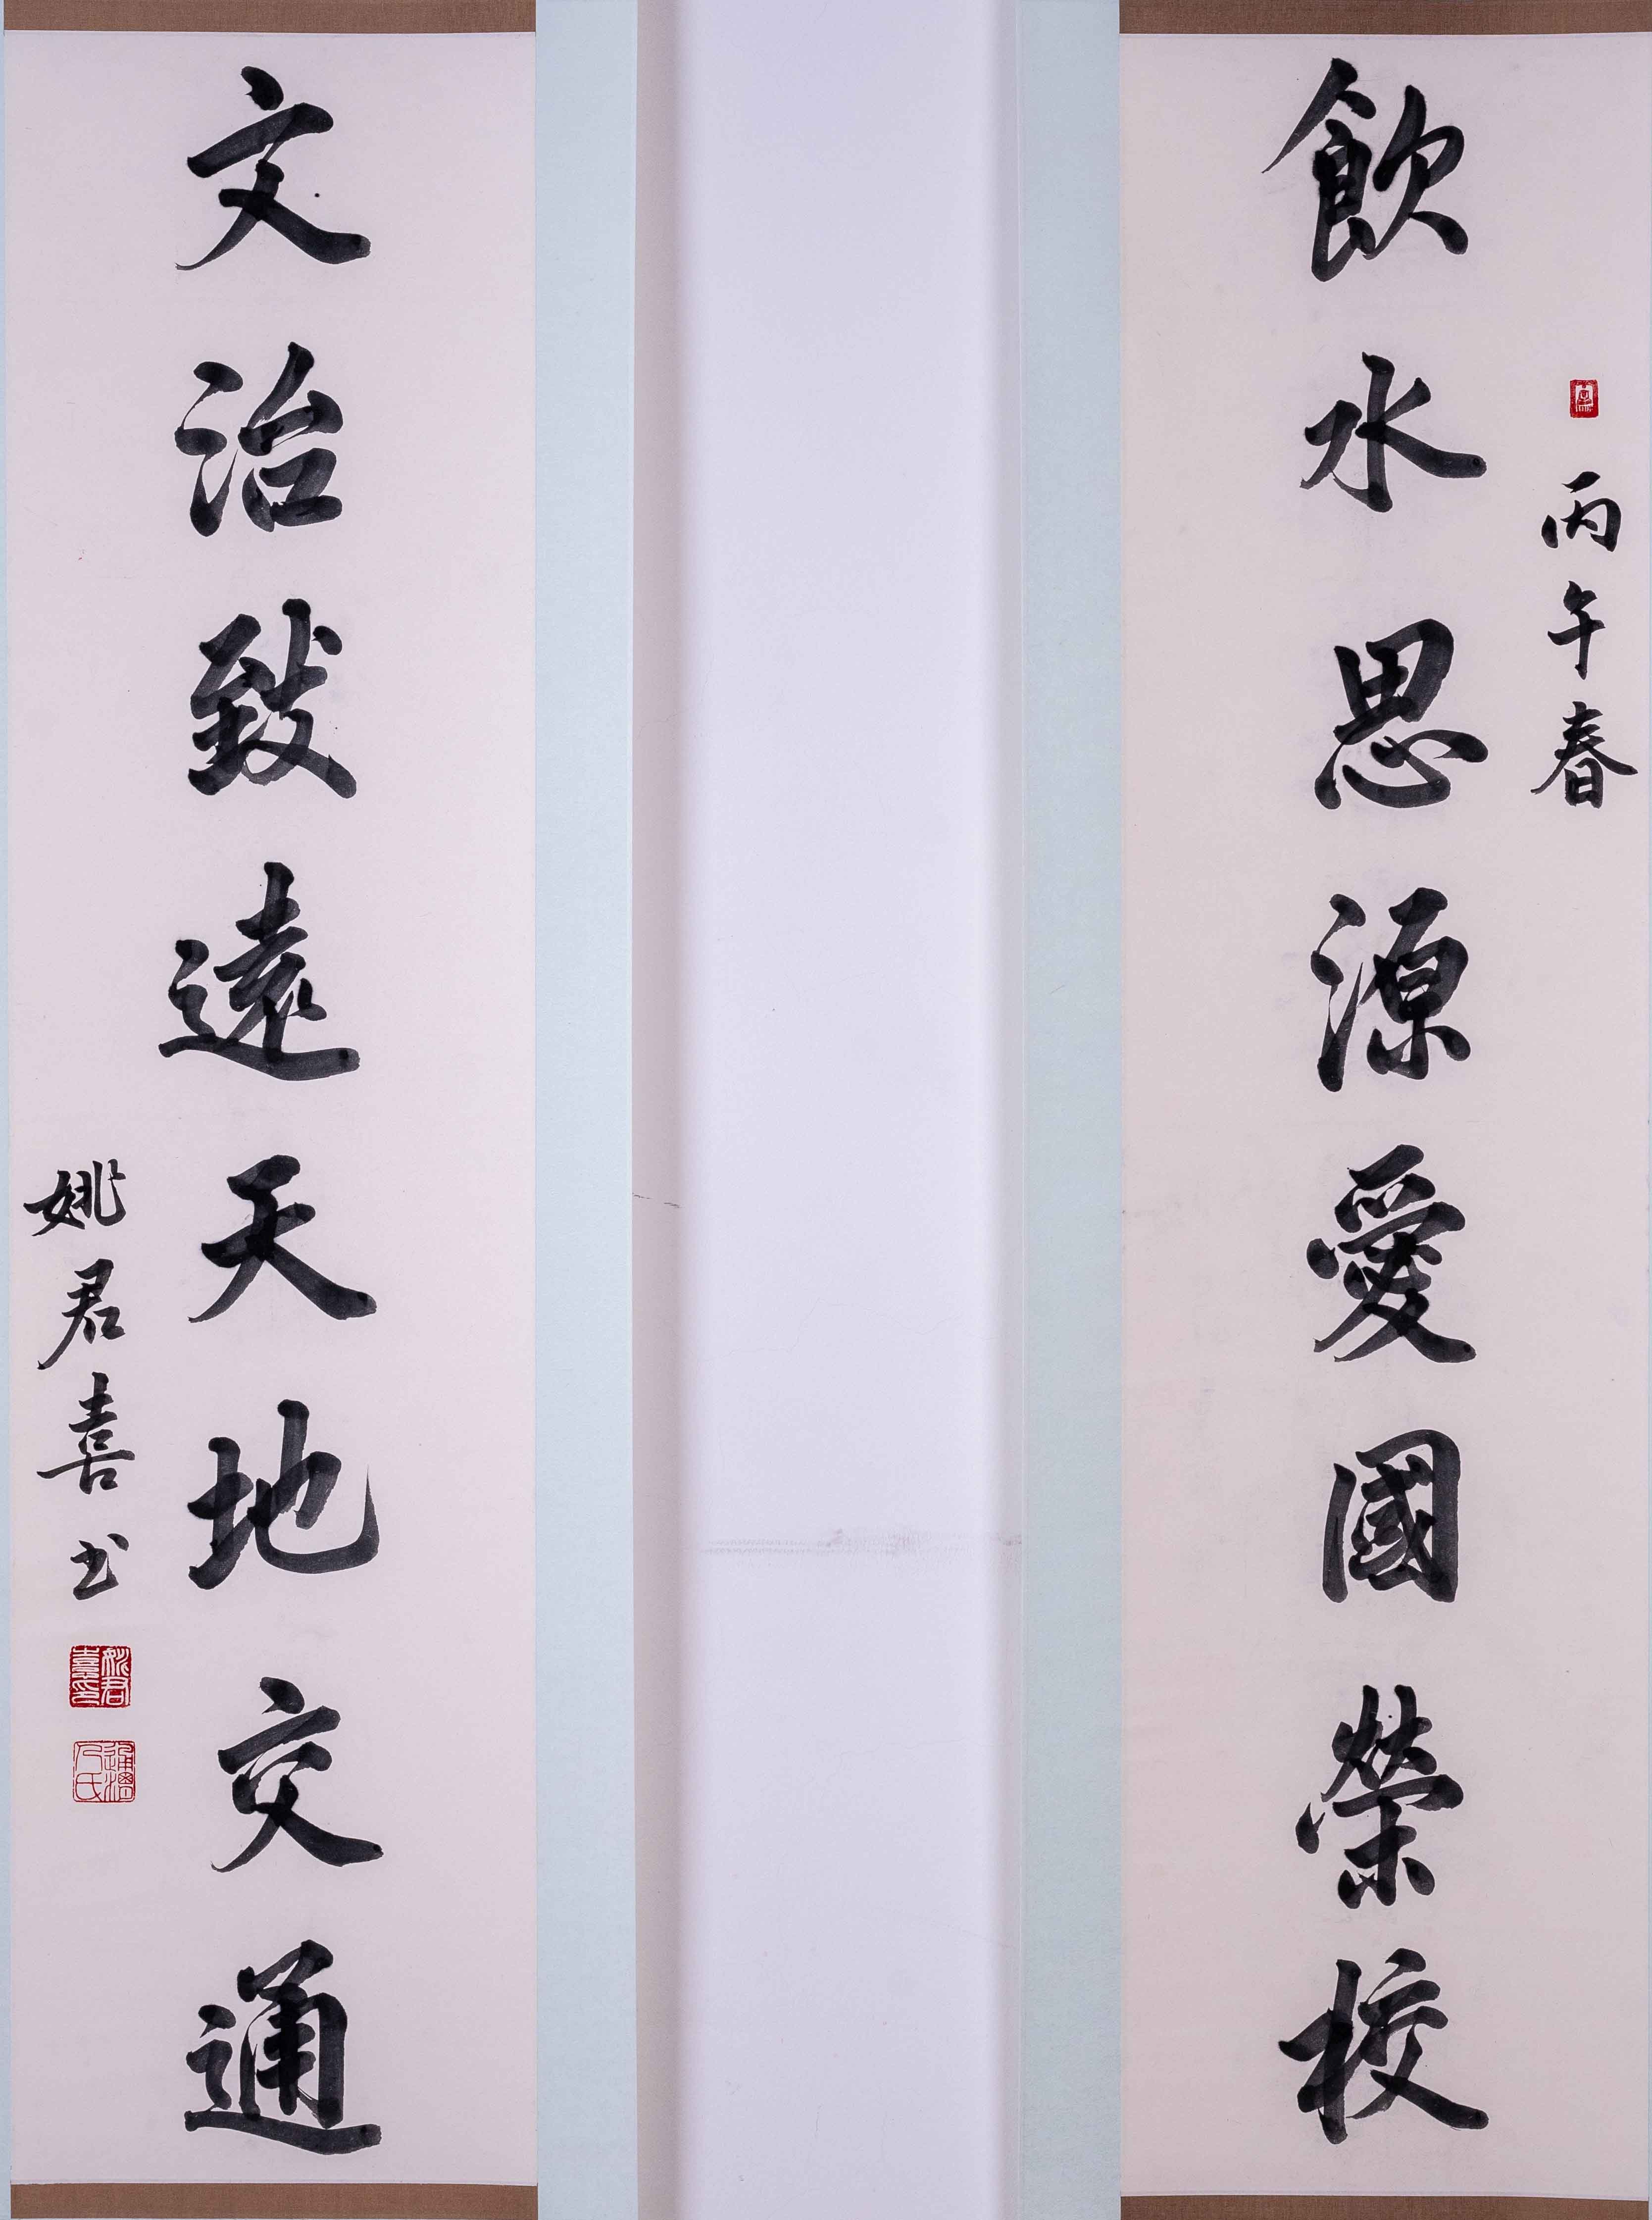 丙午春
飲水思源愛國榮校
文治致遠天地交通
姚君喜书
姚君喜印